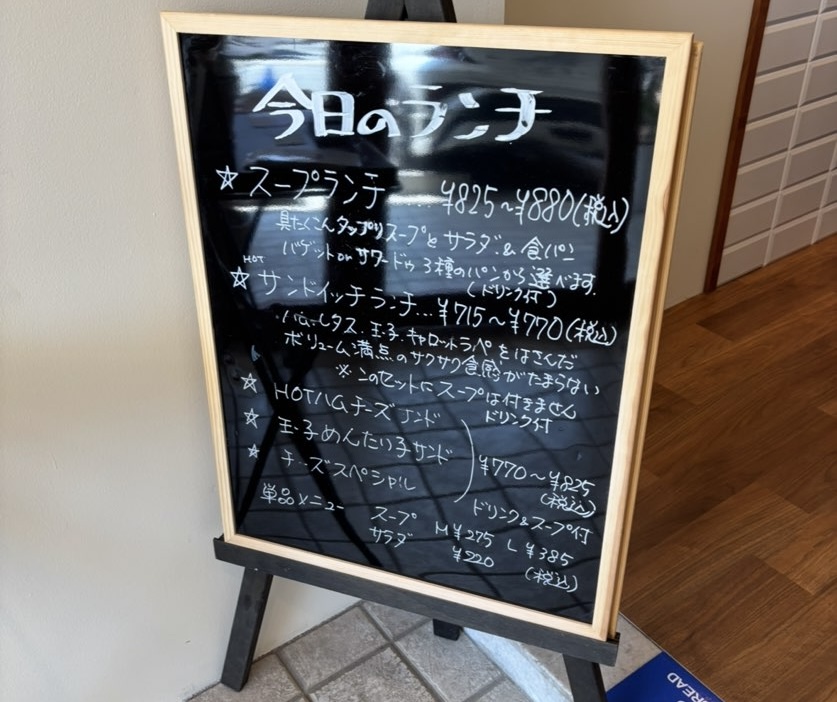 今日のランチ
☆スープランチ....¥825〜¥880(税込)
具だくさんタップリスープとサラダ&食パン
バゲットorサワードゥ3種のパンから選べます.
(ドリンク付)
HOT
☆サンドイッチランチ...¥715〜¥770(税込)
ハム・レタス・玉子・キャロットラペをはさんだ
ボリューム満点のサクサク食感がたまらない
※このセットにスープは付きません
ドリンク付
☆HOTハムチーズサンド
☆玉子めんたい子サンド
☆チーズスペシャル
¥770〜¥825
(税込)
ドリンク&スープ付
単品メニュー
スープ M¥275 L¥385
サラダ ¥220
(税込)
READ